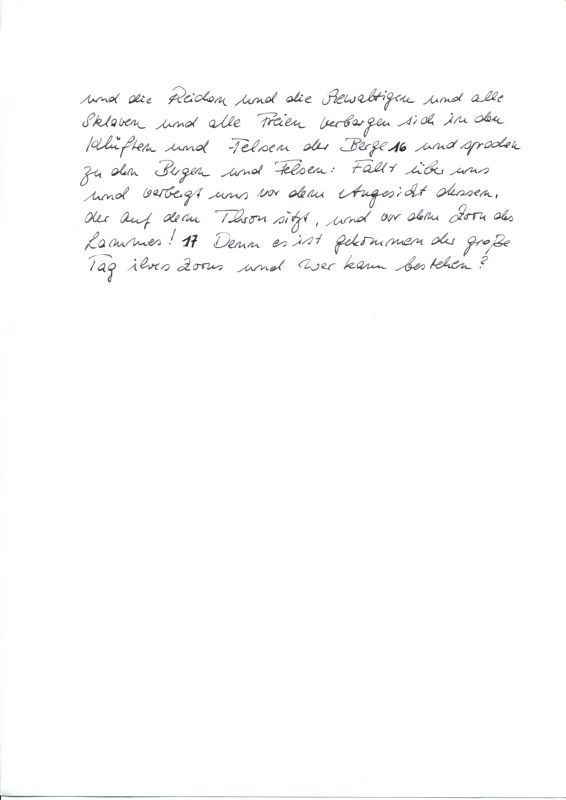 und die Reichen und die Gewaltigen und alle
Sklaven und alle Freien verbargen sich in den
Klüften und Felsen der Berge 16 und sprachen
zu den Bergen und Felsen: Fallt über uns
und verbergt uns vor dem Angesicht dessen,
der auf dem Thron sitzt, und vor dem Zorn des
Lammes! 17 Denn es ist gekommen der große
Tag ihres Zorns und wer kann bestehen?